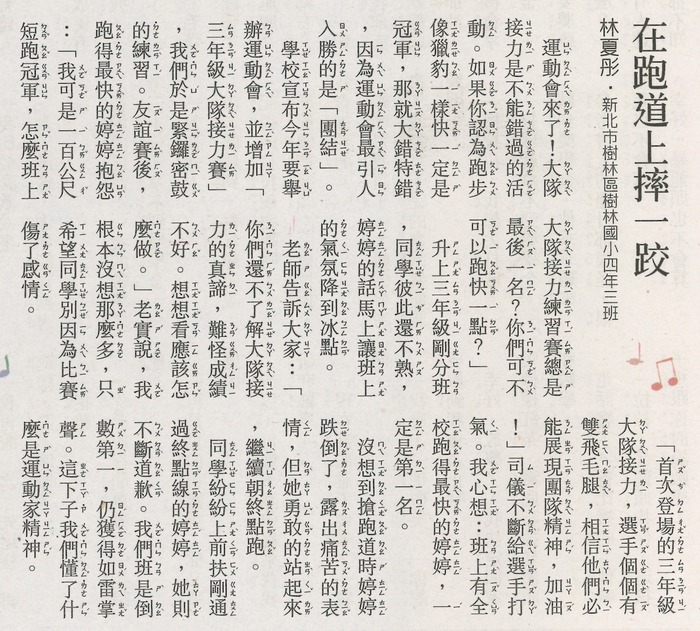 在跑道上摔一跤
林夏彤・新北市樹林區樹林國小四年三班
運動會來了！大隊
接力是不能錯過的活
動。如果你認為跑步
像獵豹一樣快一定是
冠軍，那就大錯特錯
，因為運動會最引人
入勝的是「團結」。
學校宣布今年要舉
辦運動會，並增加「
三年級大隊接力賽」
，我們於是緊鑼密鼓
的練習。友誼賽後，
跑得最快的婷婷抱怨
：「我可是一百公尺
短跑冠軍，怎麼班上
大隊接力練習賽總是
最後一名？你們可不
可以跑快一點？」
升上三年級剛分班
，同學彼此還不熟，
婷婷的話馬上讓班上
的氣氛降到冰點。
老師告訴大家：「
你們還不了解大隊接
力的真諦，難怪成績
不好。想想看應該怎
麼做。」老實說，我
根本沒想那麼多，只
希望同學別因為比賽
傷了感情。
「首次登場的三年級
大隊接力，選手個個有
雙飛毛腿，相信他們必
能展現團隊精神，加油
！」司儀不斷給選手打
氣。我心想：班上有全
校跑得最快的婷婷，一
定是第一名。
沒想到搶跑道時婷婷
跌倒了，露出痛苦的表
情，但她勇敢的站起來
，繼續朝終點跑。
同學紛紛上前扶剛通
過終點線的婷婷，她則
不斷道歉。我們班是倒
數第一，仍獲得如雷掌
聲。這下子我們懂了什
麼是運動家精神。